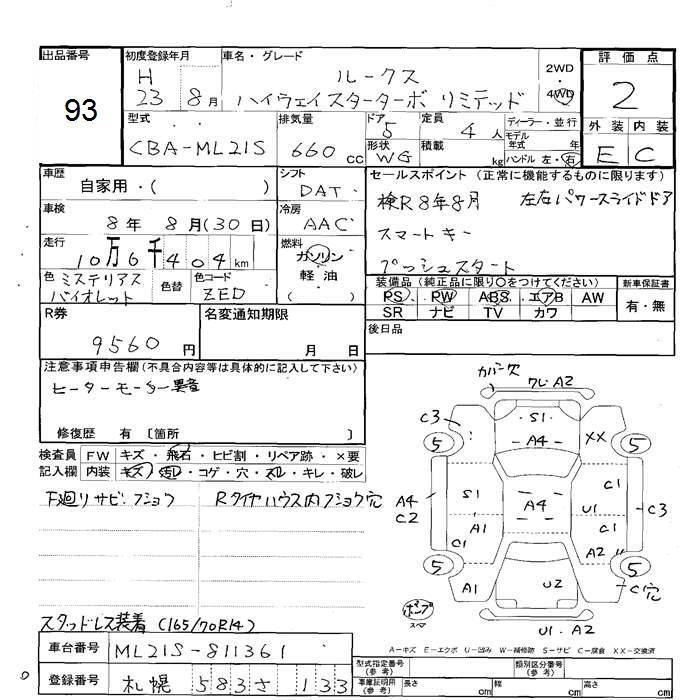 出品番号
93
初度登録年月
H
23 8月
車名・グレード
ルークス
ハイウェイスターターボ リミテッド
2WD
・
4WD
評価点
2
外装 内装
E C
型式
CBA-ML21S
排気量
660 cc
ドア
5
形状
WG
定員
4 人
積載
kg
ディーラー・並行
モデル年式 年
ハンドル 左・右
車歴
自家用・( )
シフト
DAT
車検
8年 8月(30日)
冷房
AAC
走行
10万6千404km
燃料
ガソリン
軽油
( )
色 ミステリアス
バイオレット
色替
色コード
ZED
セールスポイント (正常に機能するものに限ります)
検R8年8月 左右パワースライドドア
スマートキー
プッシュスタート
装備品 (純正品に限り○をつけてください)
PS PW ABS エアB AW
SR ナビ TV カワ
新車保証書
有・無
R券
9560 円
名変通知期限
月 日
後日品
注意事項申告欄(不具合内容等は具体的に記入して下さい)
ヒーターモーター異音
修復歴 有 〔箇所 〕
検査員 FW キズ・飛石・ヒビ割・リペア跡・×要
記入欄 内装 キズ・汚レ・コゲ・穴・スレ・キレ・破レ
下廻りサビ・フショク
Rタイヤハウス内フショク穴
スタッドレス装着 (165/70R14)
カバー欠
フレ.A2
C3
S1
A4
XX
5
5
C1
A4
C2
S1
A4
U1
C1
C3
A1
C1
A2
5
5
A1
U2
C穴
ポンプ
スマ
U1.A2
A-キズ E-エクボ U-凹み W-補修跡 S-サビ C-腐食 XX-交換済
車台番号
ML21S-811361
登録番号
札幌 583 さ 133
型式指定番号
(参考)
類別区分番号
(参考)
車庫証明用
(参考)
長さ cm
幅 cm
高さ cm